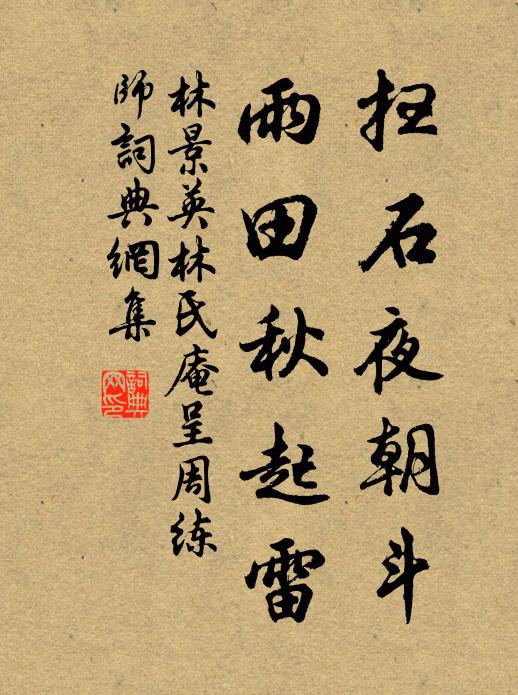 扫石夜朝斗
雨田秋起雷
林景英林氏庵呈周练
师詞典網集
詞典
网印